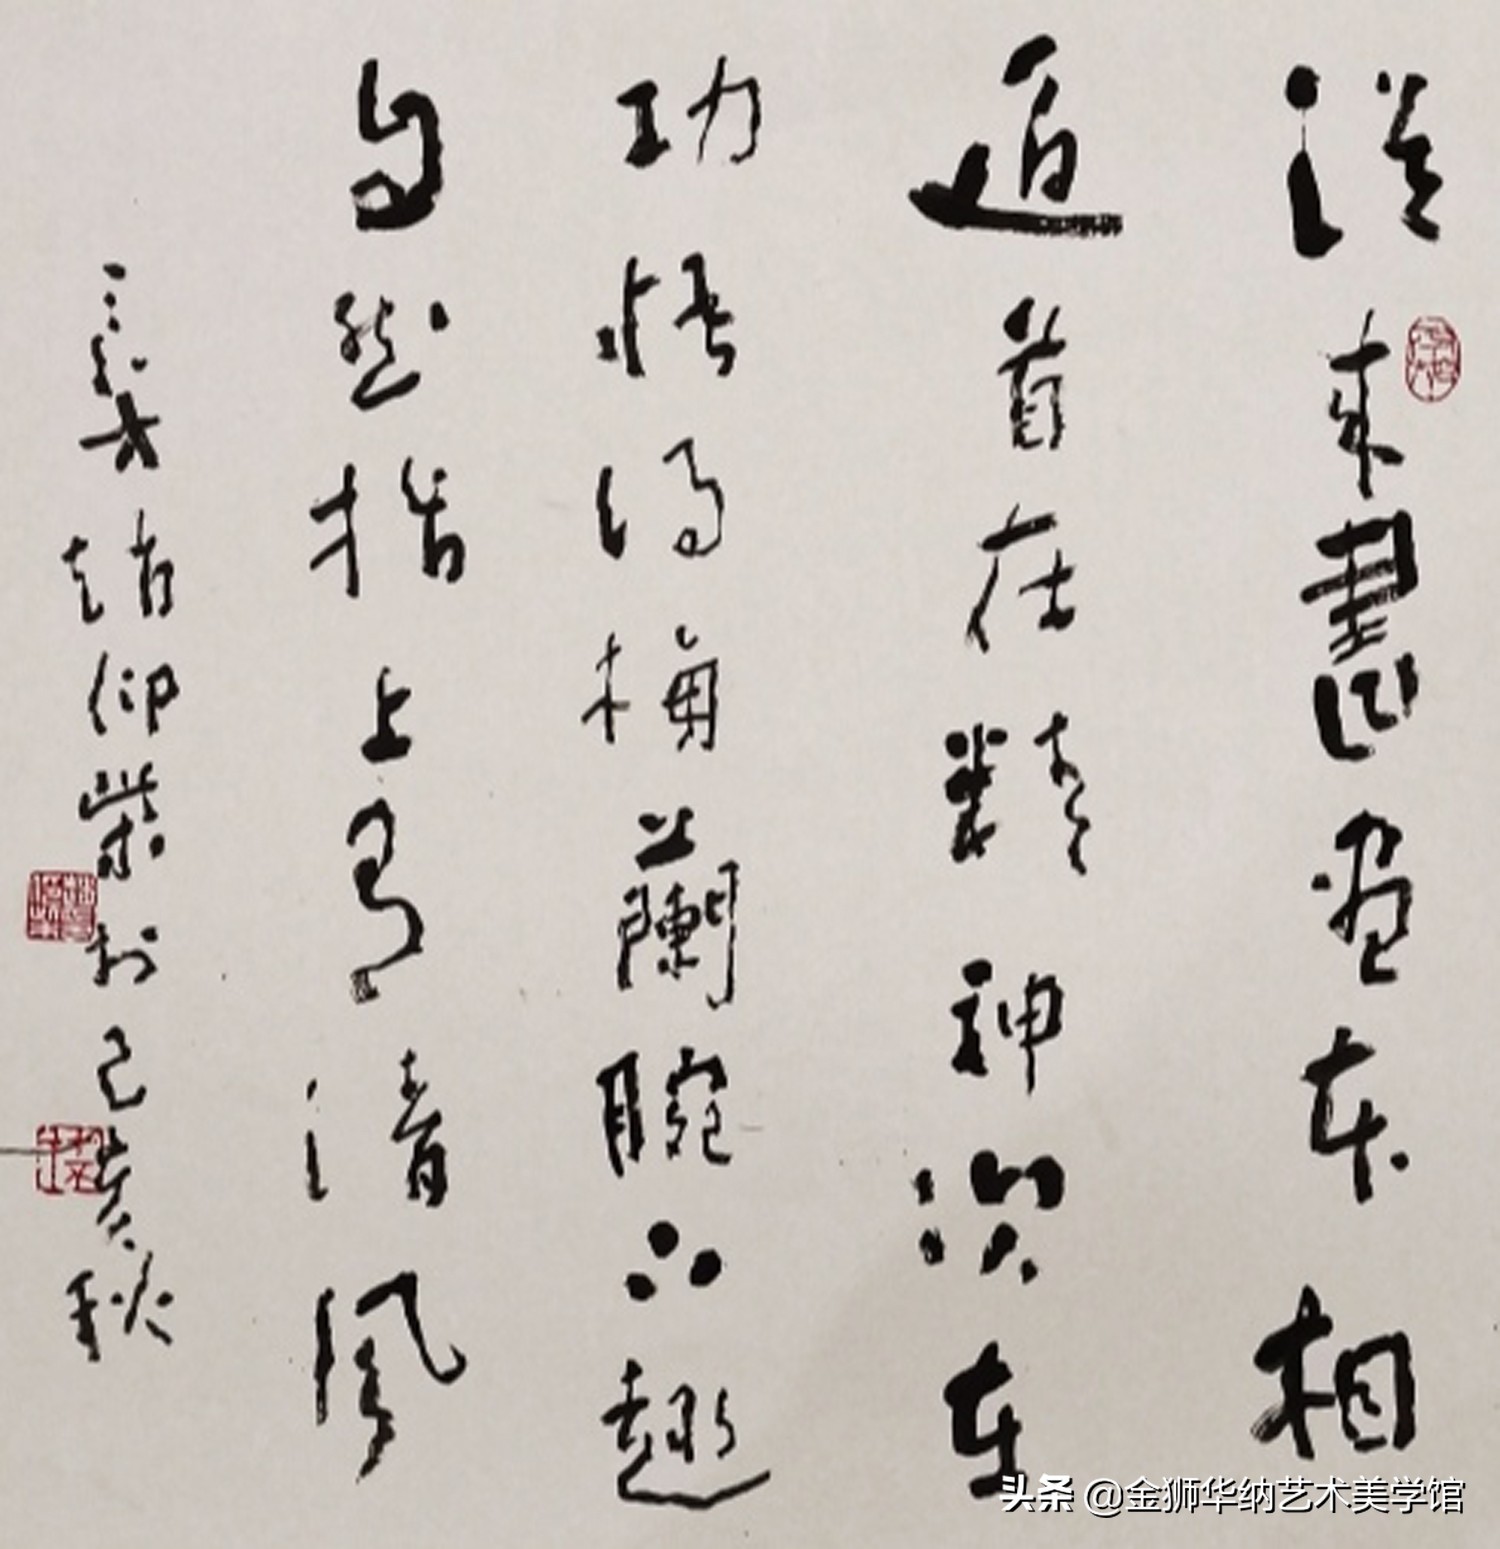 從来書画本相
通首在精神次在
功悟得梅蘭腕下趣
自然指上有清風
趙仰柴於己亥秋
头条 @金狮华纳艺术美学馆